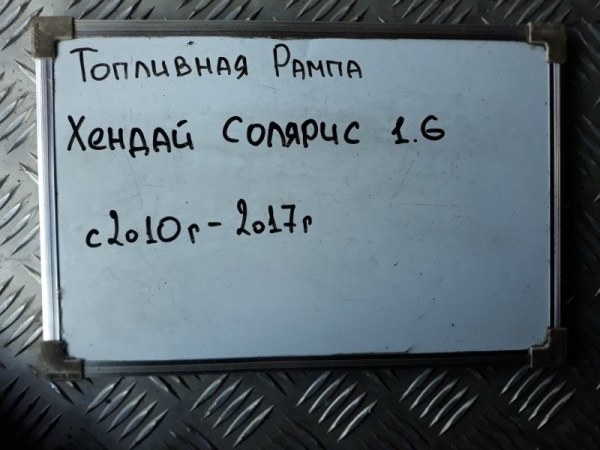 Топливная Рампа
Хендай Солярис 1.6
с 2010г - 2017г